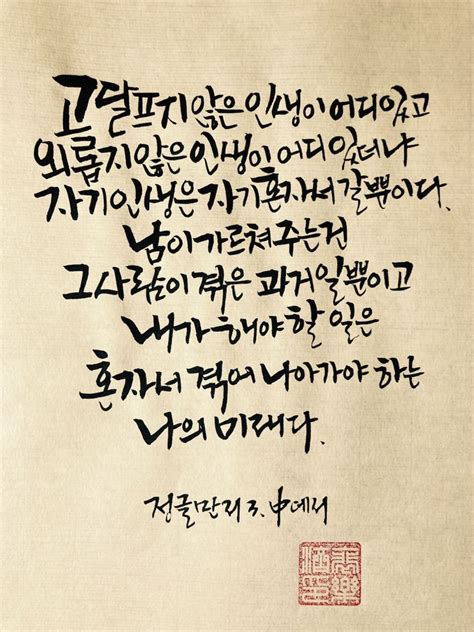 고달프지 않은 인생이 어디있고
외롭지 않은 인생이 어디 있더냐
자기 인생은 자기 혼자서 갈뿐이다.
남이 가르쳐주는건
그 사람이 겪은 과거일 뿐이고
내가 해야 할 일은
혼자서 겪어 나아가야 하는
나의 미래다.
정글만리 3. 中에서